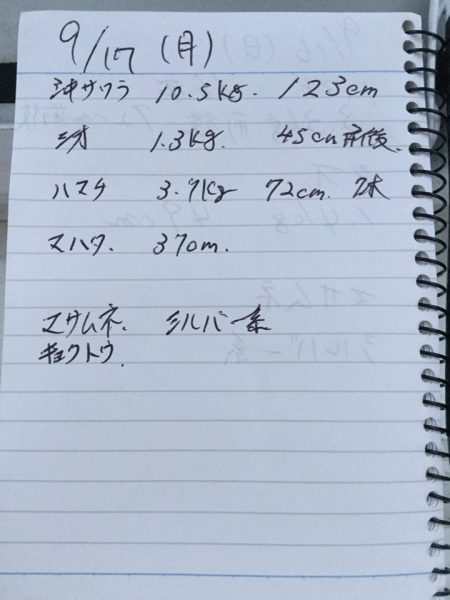 9/17 (月)
沖サワラ 10.5kg. 123cm
シオ 1.3kg. 45cm前後.
ハマチ 3.9kg 72cm. 2本
マハタ. 37cm.
マサムネ. シルバー系
キョクトウ.